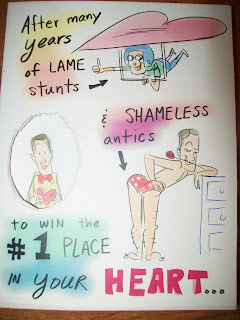 After many
years
of LAME
stunts
& SHAMELESS
antics
to WIN the
#1 PLACE
IN YOUR HEART...